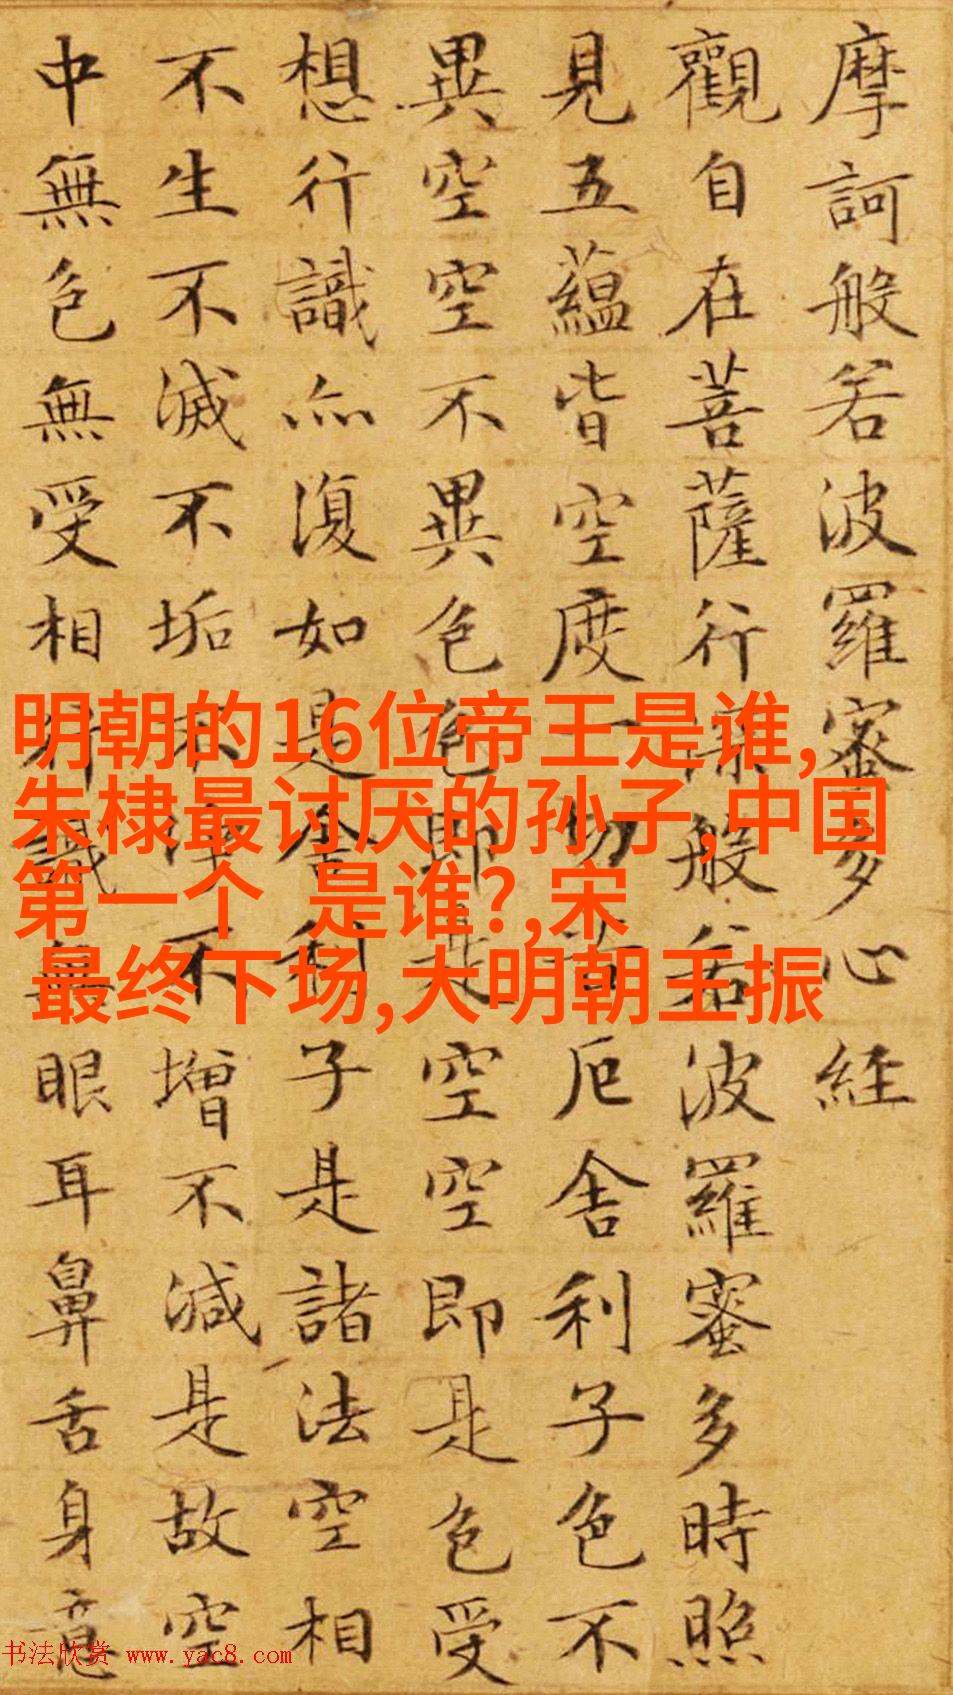 摩訶般若波羅蜜多心經
觀自在菩薩行深般若波羅蜜多時照
見五蘊皆空度一切苦厄舍利子色不
異空空不異色色即是空空即是色受
想行識亦復如是舍利子是諸法空相
不生不滅不垢不淨不增不減是故空
中無色無受相行識無眼耳鼻舌身意
明朝的16位帝王是谁,
朱棣最讨厌的孙子,中国
第一个 是谁?,宋
最终下场,大明朝王振
书法欣赏 www.yac8.com